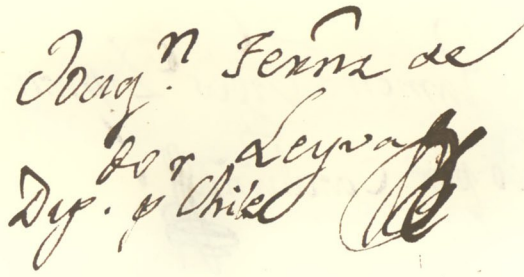 Joaq.n Fernz de
Leyva
Dip.do pr Chile